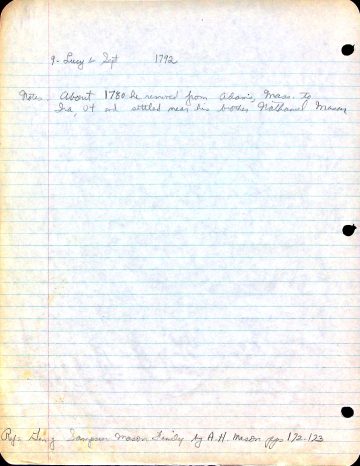 9. Lucy b Sept 1792
Notes. About 1780 he removed from Adams, Mass. to
Ira, Vt and settled near his brother Nathaniel Mason
Ref: Gen of Sampson Mason Family by A.H. Mason pgs 122-123